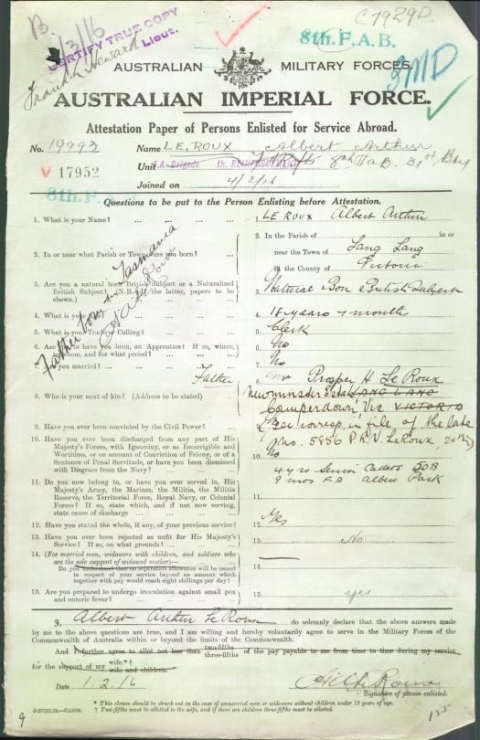 B.
1/3/16
CERTIFY TRUE COPY
Lieut.
C7929D.
8th. F.A.B.
3MD
AUSTRALIAN MILITARY FORCES.
AUSTRALIAN IMPERIAL FORCE.
Attestation Paper of Persons Enlisted for Service Abroad.
No. 19993 Name LE ROUX Albert Arthur
V 17952
Unit 8th F.A.B. 31st Bty
Joined on 4/2/16
8th. F.
Questions to be put to the Person Enlisting before Attestation.
1. What is your Name? 1. LE ROUX Albert Arthur
2. In or near what Parish or Town were you born? 2. In the Parish of in or
near the Town of Lang Lang
in the County of Victoria
3. Are you a natural born British Subject or a Naturalized
British Subject? (N.B.—If the latter, papers to be
shown.) 3. Natural Born British Subject
Father born in Tasmania
4. What is your 4. 18 years 7 months
5. What is your Trade or Calling? 5. Clerk
6. Are you, or have you been, an Apprentice? If so, where,
to whom, and for what period? 6. No
7. Are you married? 7. No
Father
8. Who is your next of kin? (Address to be stated) 8. Mr Prosper H Le Roux
LANG LANG
Camperdown, Vic VICTORIA
(See corresp. in file of the late
No. 5956 P.R.V. LeRoux,
9. Have you ever been convicted by the Civil Power? 9. No
10. Have you ever been discharged from any part of His
Majesty's Forces, with Ignominy, or as Incorrigible and
Worthless, or on account of Conviction of Felony, or of a
Sentence of Penal Servitude, or have you been dismissed
with Disgrace from the Navy? 10.
11. Do you now belong to, or have you ever served in, His
Majesty's Army, the Marines, the Militia, the Militia
Reserve, the Territorial Force, Royal Navy, or Colonial
Forces? If so, state which, and if not now serving,
state cause of discharge 11. 4 yrs Senior Cadets 50B
9 mos Albert Park
12. Have you stated the whole, if any, of your previous service? 12. Yes
13. Have you ever been rejected as unfit for His Majesty's
Service? If so, on what grounds? 13. No
14. (For married men, widowers with children, and soldiers who
are the sole support of widowed mother)—
Do you understand that no separation allowance will be issued
in respect of your service beyond an amount which
together with pay would reach eight shillings per day? 14.
15. Are you prepared to undergo inoculation against small pox
and enteric fever? 15. yes
I, Albert Arthur Le Roux do solemnly declare that the above answers made
by me to the above questions are true, and I am willing and hereby voluntarily agree to serve in the Military Forces of the
Commonwealth of Australia within or beyond the limits of the Commonwealth.
And I further agree to allot not less than two-fifths three-fifths of the pay payable to me from time to time during my service
for the support of my wife.*† wife and children.
Date 1.2.16
Signature of person enlisted.
* This clause should be struck out in the case of unmarried men or widowers without children under 18 years of age.
† Two-fifths must be allotted to the wife, and if there are children three-fifths must be allotted.
9
125